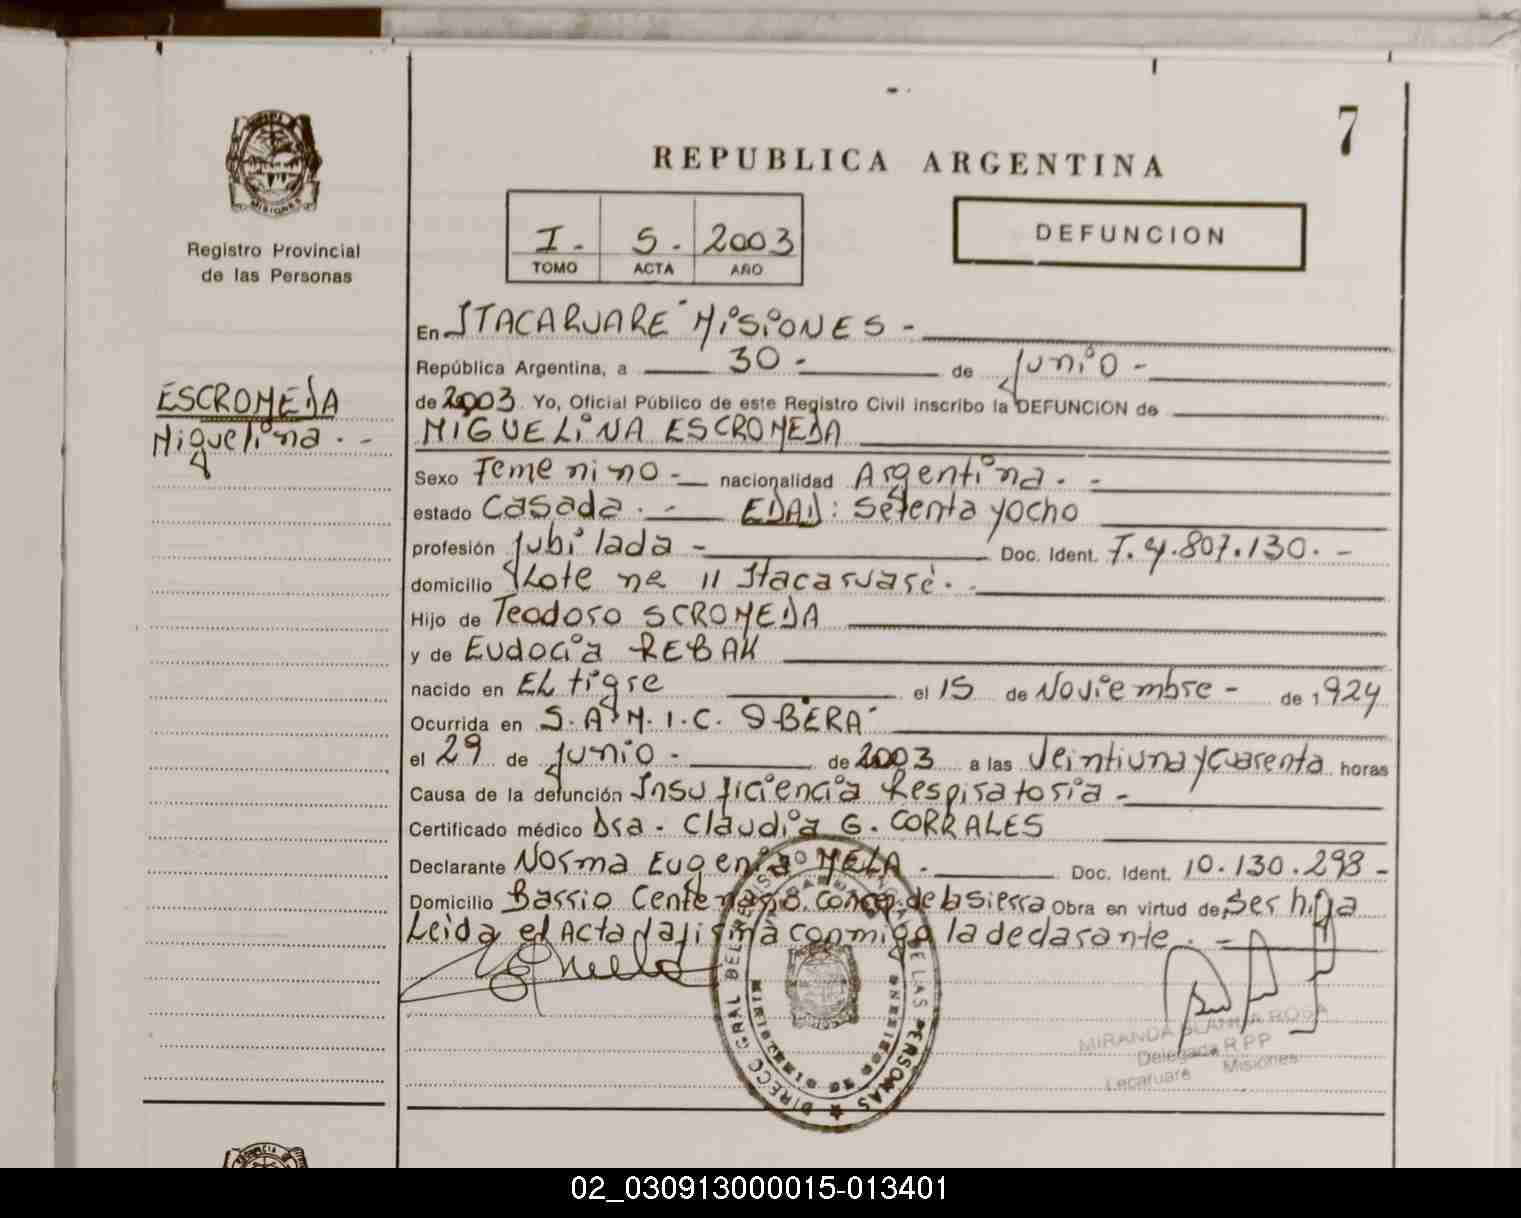 7
REPUBLICA ARGENTINA
Registro Provincial
de las Personas
I. 5. 2003
TOMO ACTA AÑO
DEFUNCION
ESCROMEDA
Miguelina . -
En ITACARUARE MISIONES -
República Argentina, a 30 - de junio -
de 2003 Yo, Oficial Público de este Registro Civil inscribo la DEFUNCION de
MIGUELINA ESCROMEDA
Sexo Femenino - nacionalidad Argentina . -
estado Casada . - EDAD: Setenta y ocho
profesión Jubilada - Doc. Ident. F. 4.807.130. -
domicilio Lote no 11 Itacaruaré .
Hijo de Teodoro SCROMEDA
y de Eudocia REBAK
nacido en EL tigre el 15 de Noviembre - de 1924
Ocurrida en S.A.M.I.C. OBERA
el 29 de junio - de 2003 a las Veintiuna y cuarenta horas
Causa de la defunción Insuficiencia Respiratoria -
Certificado médico Dra. Claudia G. CORRALES
Declarante Norma Eugenia MELA . Doc. Ident. 10.130.298 -
Domicilio Barrio Centenario. Concep. de la Sierra Obra en virtud de, Ser hija
Leida el Acta la firma conmigo la declarante . -
DIRECC GRAL DEL REGISTRO PROVINCIAL DE LAS PERSONAS
MIRANDA BLANCA ROSA
Delegada R P P
Misiones
02_030913000015-013401